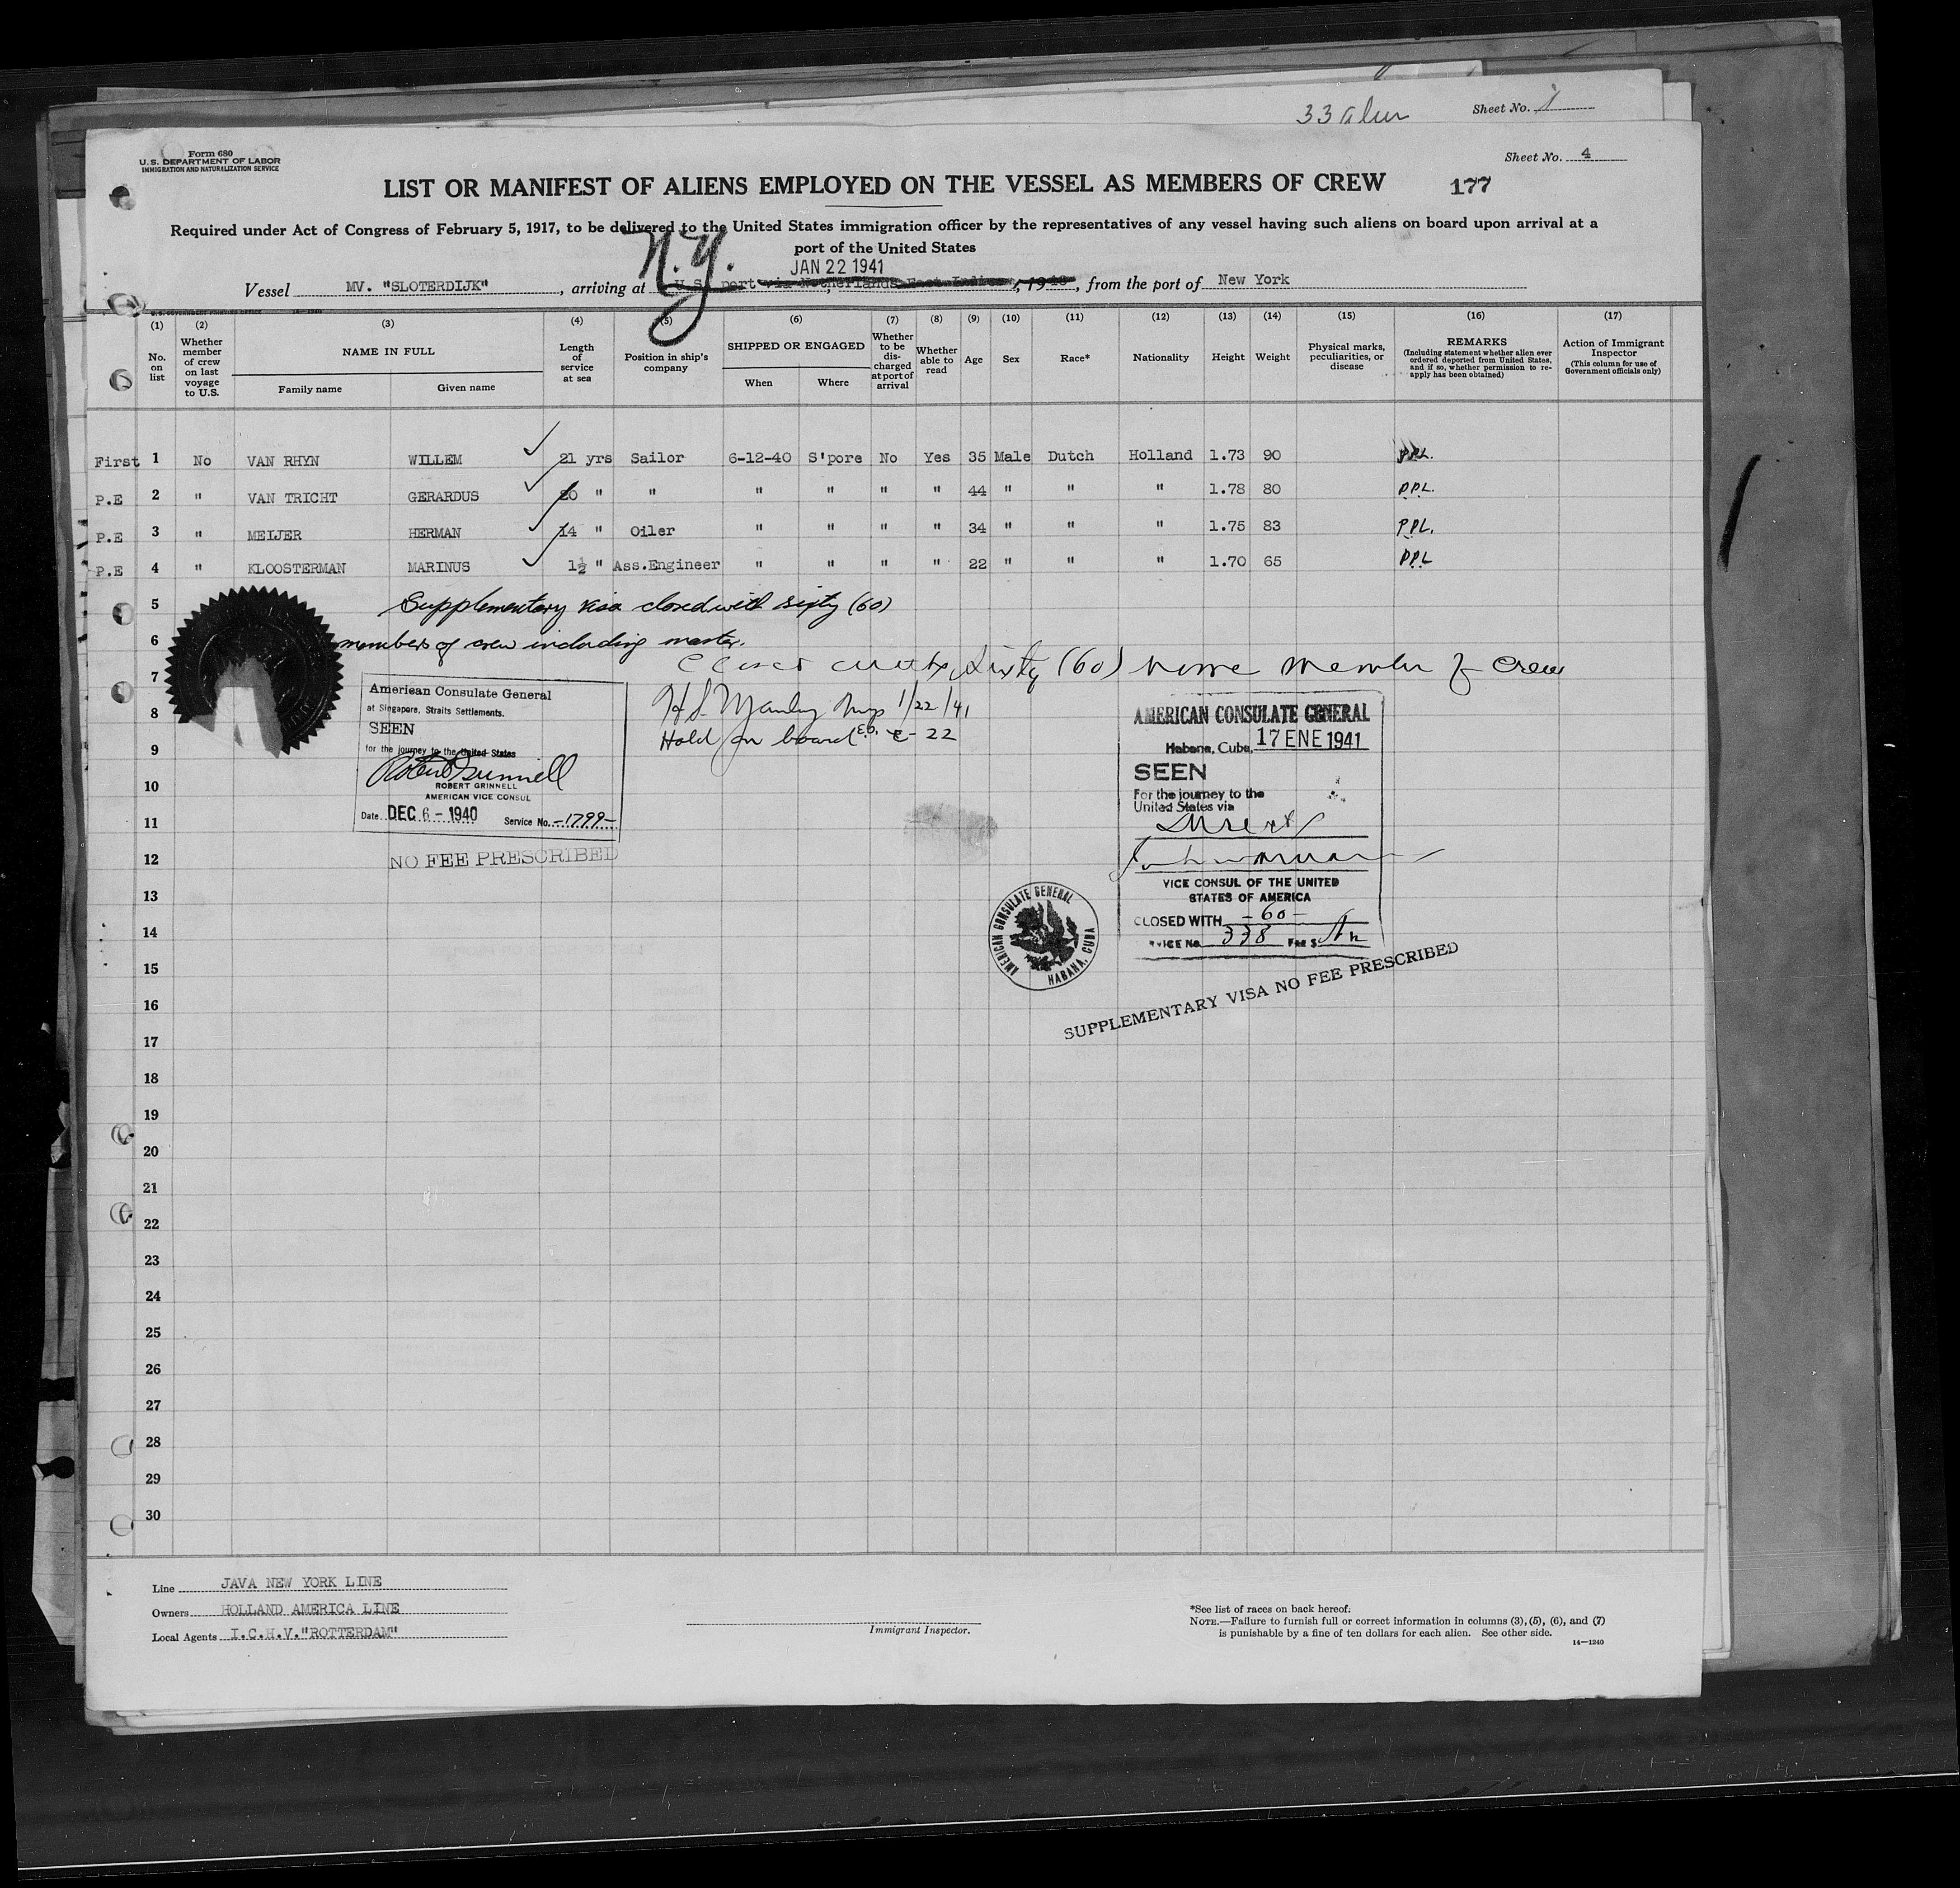 33 alien
Sheet No.
Form 680
U.S. DEPARTMENT OF LABOR
IMMIGRATION AND NATURALIZATION SERVICE
Sheet No. 4
LIST OR MANIFEST OF ALIENS EMPLOYED ON THE VESSEL AS MEMBERS OF CREW
177
Required under Act of Congress of February 5, 1917, to be delivered to the United States immigration officer by the representatives of any vessel having such aliens on board upon arrival at a
port of the United States
N.Y.
JAN 22 1941
Vessel MV. "SLOTERDIJK", arriving at U.S. port via Netherlands East Indies, 1940, from the port of New York
(1) No. on list
(2) Whether member of crew on last voyage to U.S.
(3) NAME IN FULL
Family name Given name
(4) Length of service at sea
(5) Position in ship's company
(6) SHIPPED OR ENGAGED
When Where
(7) Whether to be discharged at port of arrival
(8) Whether able to read
(9) Age
(10) Sex
(11) Race*
(12) Nationality
(13) Height
(14) Weight
(15) Physical marks, peculiarities, or disease
(16) REMARKS
(Including statement whether alien ever ordered deported from United States, and if so, whether permission to re-apply has been obtained)
(17) Action of Immigrant Inspector
(This column for use of Government officials only)
First 1 No VAN RHYN WILLEM 21 yrs Sailor 6-12-40 S'pore No Yes 35 Male Dutch Holland 1.73 90 P.P.L.
P.E 2 " VAN TRICHT GERARDUS 20 " " " " " " 44 " " " 1.78 80 P.P.L.
P.E 3 " MEIJER HERMAN 14 " Oiler " " " " 34 " " " 1.75 83 P.P.L.
P.E 4 " KLOOSTERMAN MARINUS 1½ " Ass.Engineer " " " " 22 " " " 1.70 65 P.P.L
5 Supplementary visa closed with sixty (60)
6 members of crew including master.
Closed with Sixty (60) member of crew
7
8
9
10
11
12
13
14
15
16
17
18
19
20
21
22
23
24
25
26
27
28
29
30
American Consulate General
at Singapore, Straits Settlements.
SEEN
for the journey to the United States
Robert Grinnell
ROBERT GRINNELL
AMERICAN VICE CONSUL
Date DEC 6 - 1940 Service No. -1799-
NO FEE PRESCRIBED
H.S. Manley Insp 1/22/41
Hold on board
AMERICAN CONSULATE GENERAL
Habana, Cuba, 17 ENE 1941
SEEN
For the journey to the
United States via
Direct
VICE CONSUL OF THE UNITED
STATES OF AMERICA
CLOSED WITH -60-
SERVICE No. 338 Fee $
AMERICAN CONSULATE GENERAL
HABANA, CUBA
SUPPLEMENTARY VISA NO FEE PRESCRIBED
Line JAVA NEW YORK LINE
Owners HOLLAND AMERICA LINE
Local Agents I.C.H.V."ROTTERDAM"
Immigrant Inspector.
*See list of races on back hereof.
NOTE.—Failure to furnish full or correct information in columns (3), (5), (6), and (7)
is punishable by a fine of ten dollars for each alien. See other side.
14—1240